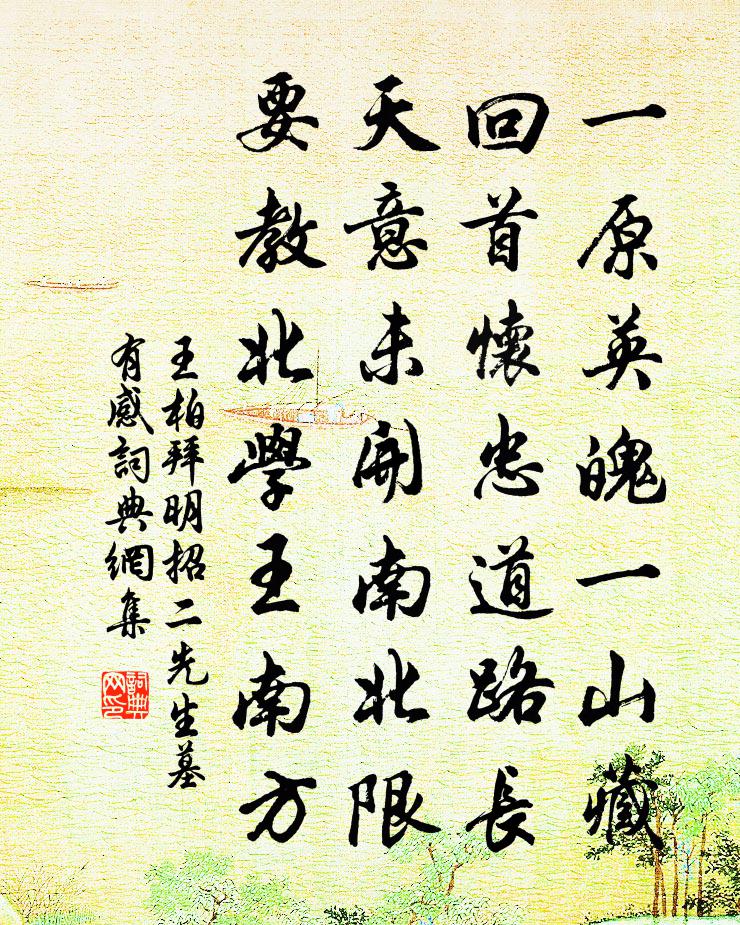 一原英魄一山藏
回首懷忠道路長
天意未開南北限
要教北學王南方
王柏拜明招二先生墓
有感詞典網集
詞典网印